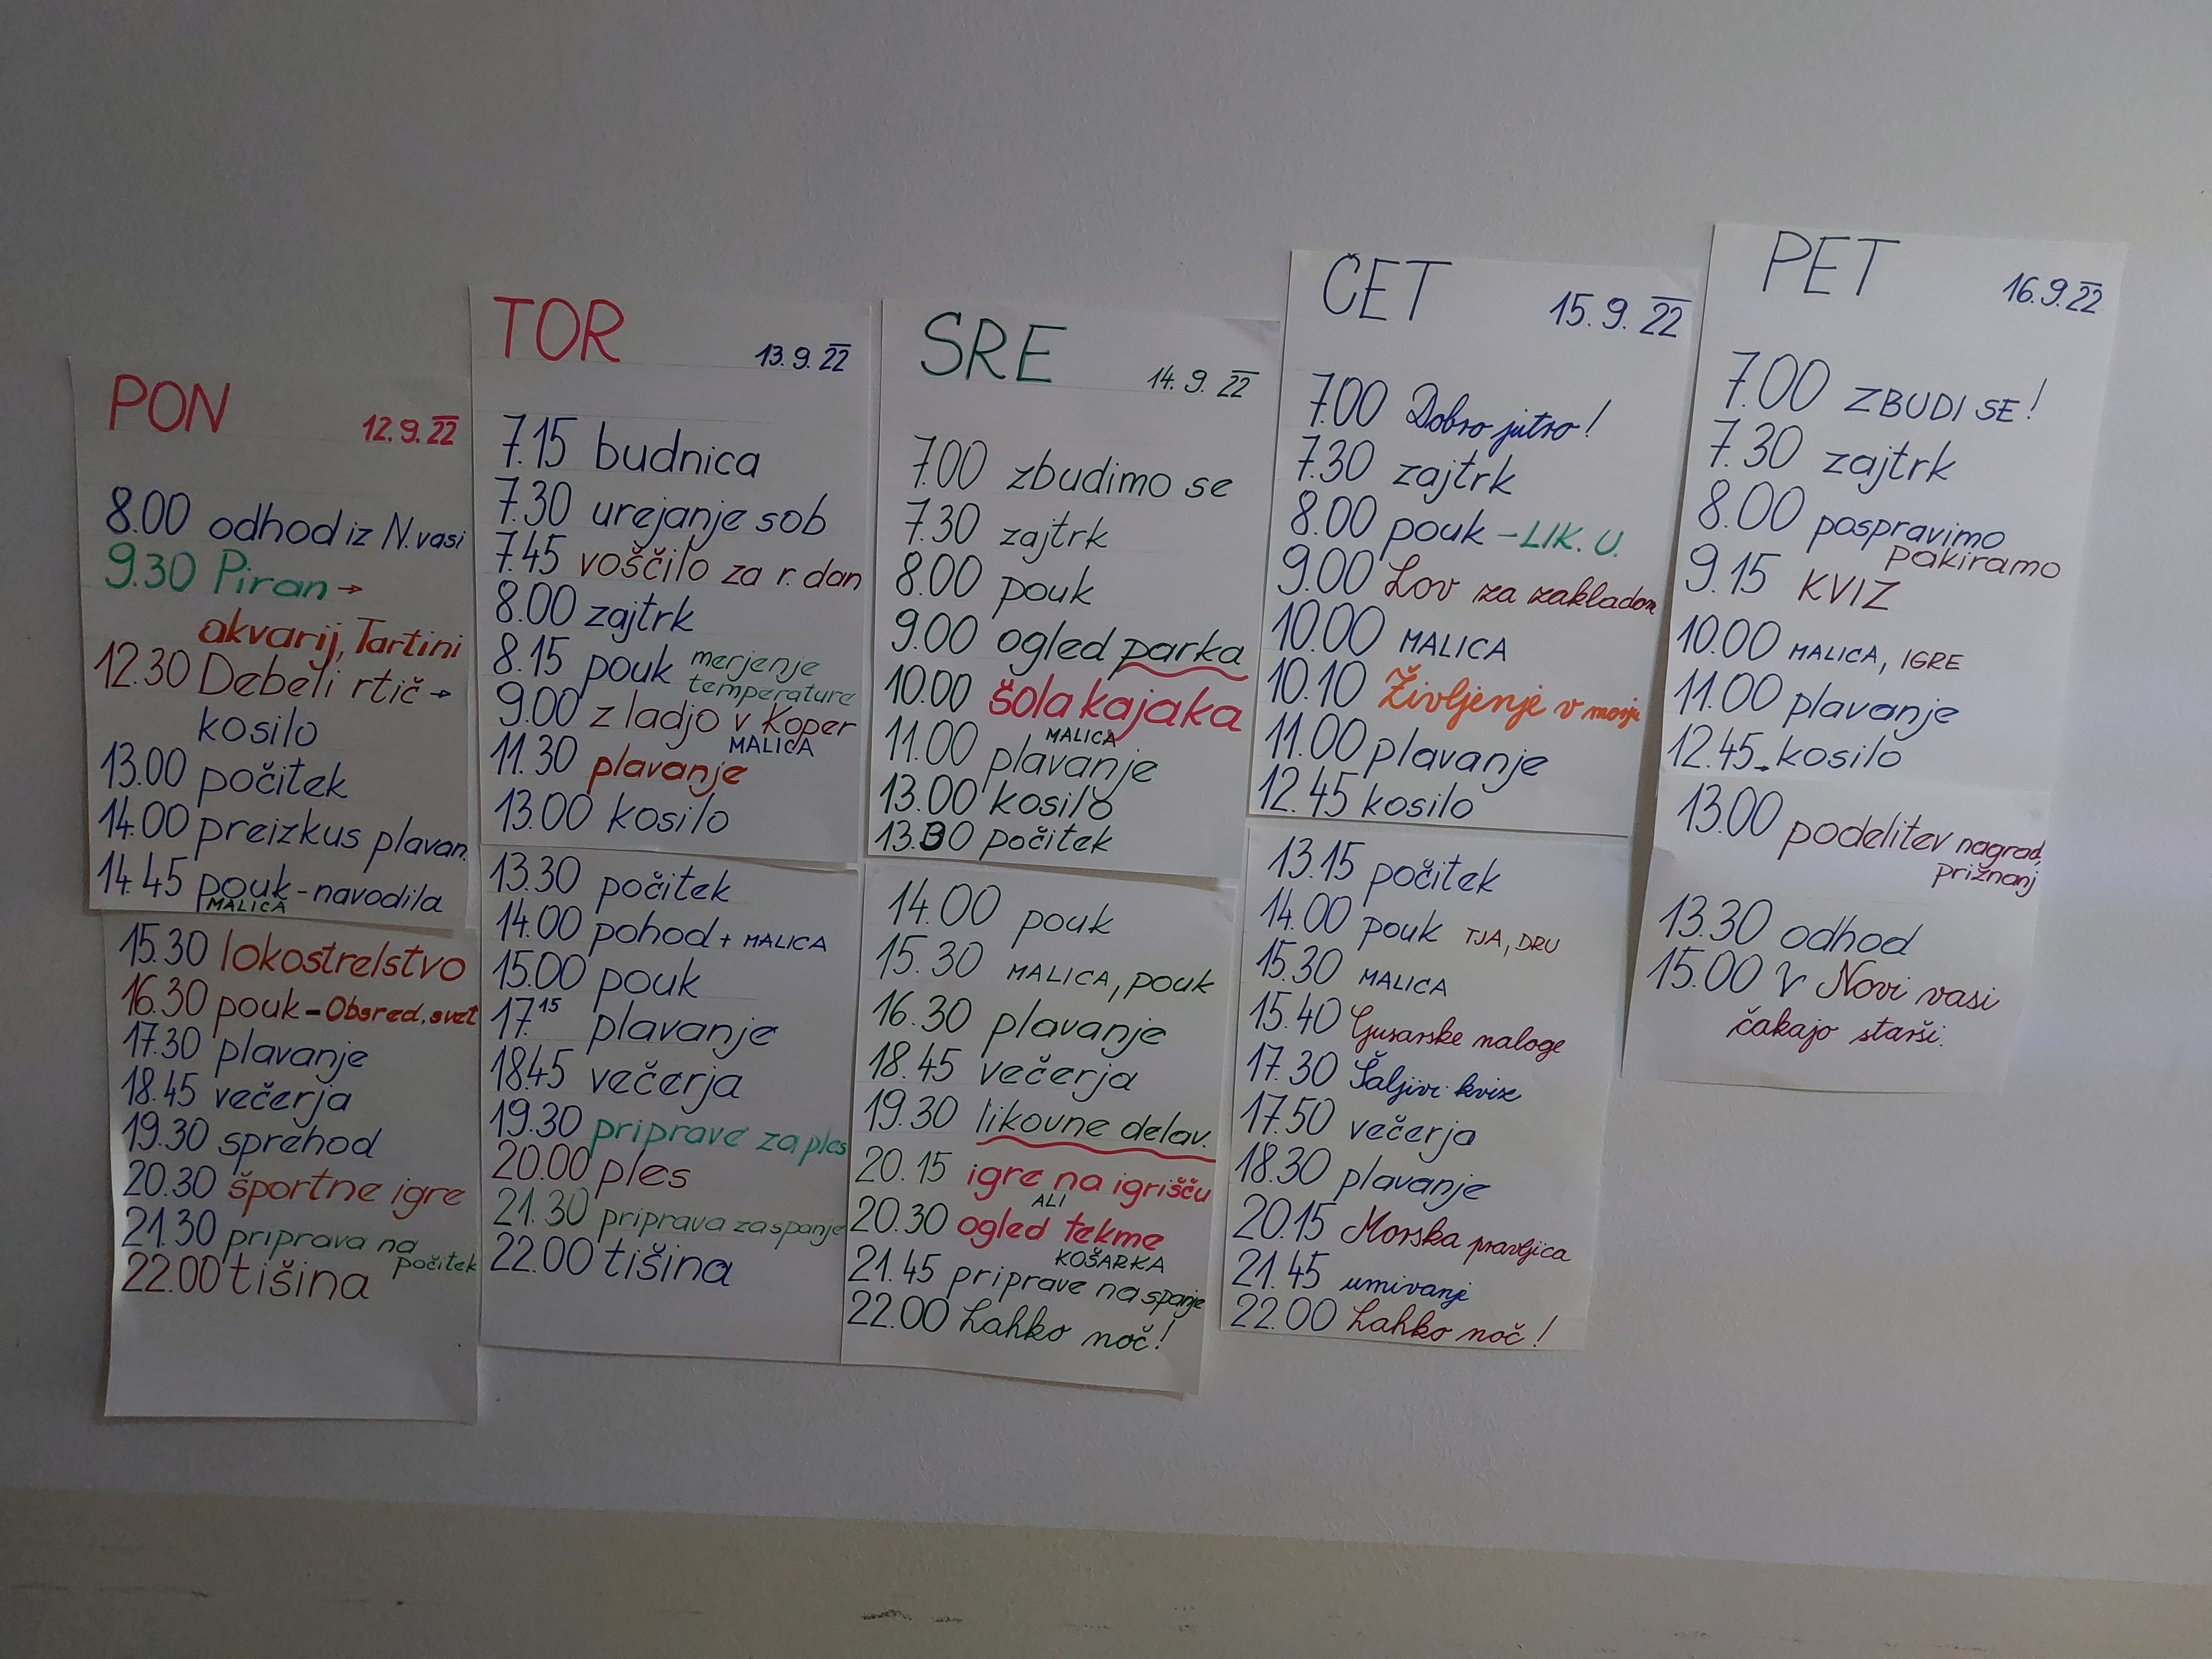 PON
12.9.22
8.00 odhod iz N. vasi
9.30 Piran →
akvarij, Tartini
12.30 Debeli rtič →
kosilo
13.00 počitek
14.00 preizkus plavan.
14.45 pouk - navodila
MALICA
15.30 lokostrelstvo
16.30 pouk - Obsred. svet
17.30 plavanje
18.45 večerja
19.30 sprehod
20.30 športne igre
21.30 priprava na
počitek
22.00 tišina
TOR
13.9.22
7.15 budnica
7.30 urejanje sob
7.45 voščilo za r. dan
8.00 zajtrk
8.15 pouk merjenje
temperature
9.00 z ladjo v Koper
MALICA
11.30 plavanje
13.00 kosilo
13.30 počitek
14.00 pohod + MALICA
15.00 pouk
17.15 plavanje
18.45 večerja
19.30 priprave za ples
20.00 ples
21.30 priprava za spanje
22.00 tišina
SRE
14.9.22
7.00 zbudimo se
7.30 zajtrk
8.00 pouk
9.00 ogled parka
10.00 šola kajaka
MALICA
11.00 plavanje
13.00 kosilo
13.30 počitek
14.00 pouk
15.30 MALICA, pouk
16.30 plavanje
18.45 večerja
19.30 likovne delav.
20.15 igre na igrišču
ALI
20.30 ogled tekme
KOŠARKA
21.45 priprave na spanje
22.00 Lahko noč!
ČET
15.9.22
7.00 Dobro jutro!
7.30 zajtrk
8.00 pouk - LIK. U.
9.00 Lov za zakladom
10.00 MALICA
10.10 Življenje v morju
11.00 plavanje
12.45 kosilo
13.15 počitek
14.00 pouk TJA, DRU
15.30 MALICA
15.40 Gusarske naloge
17.30 Šaljivi kvize
17.50 večerja
18.30 plavanje
20.15 Morska pravljica
21.45 umivanje
22.00 Lahko noč!
PET
16.9.22
7.00 ZBUDI SE!
7.30 zajtrk
8.00 pospravimo
pakiramo
9.15 KVIZ
10.00 MALICA, IGRE
11.00 plavanje
12.45 kosilo
13.00 podelitev nagrad,
priznanj
13.30 odhod
15.00 V Novi vasi
čakajo starši.